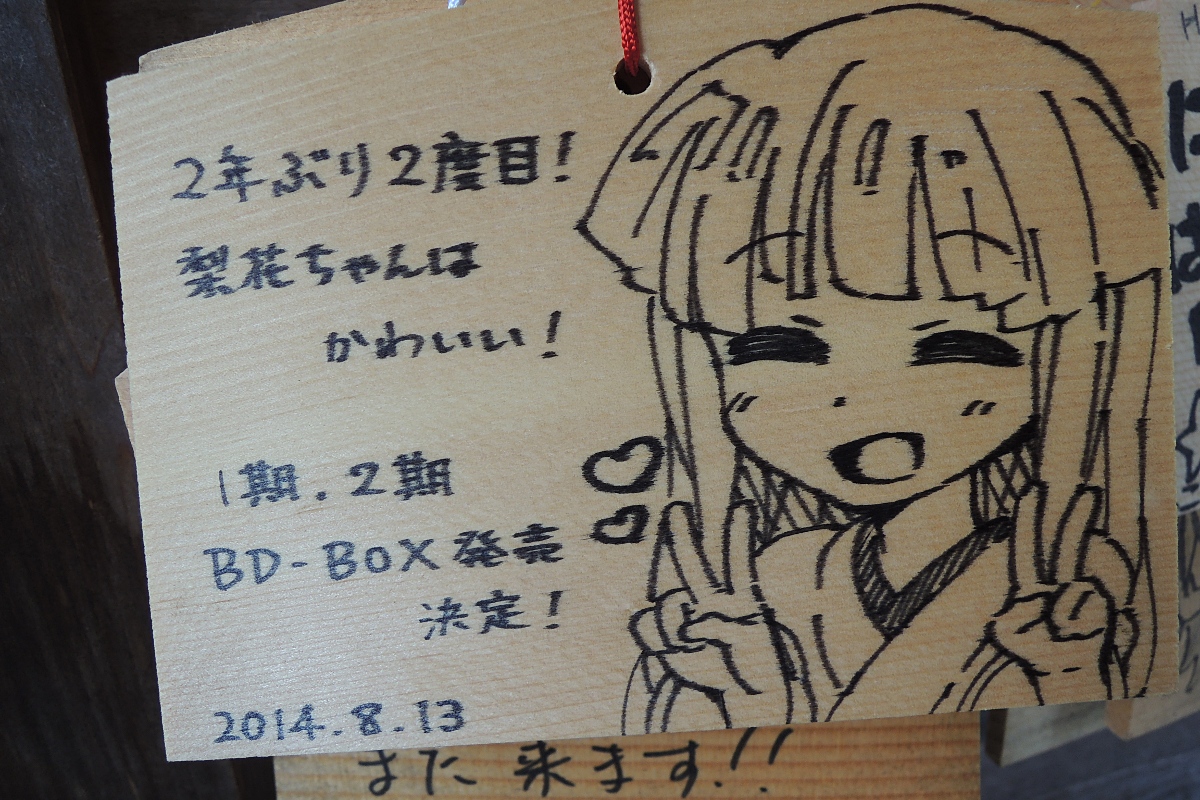 2年ぶり2度目！
梨花ちゃんは
かわいい！
1期.2期
BD-BOX発売
決定！
2014.8.13
また来ます!!